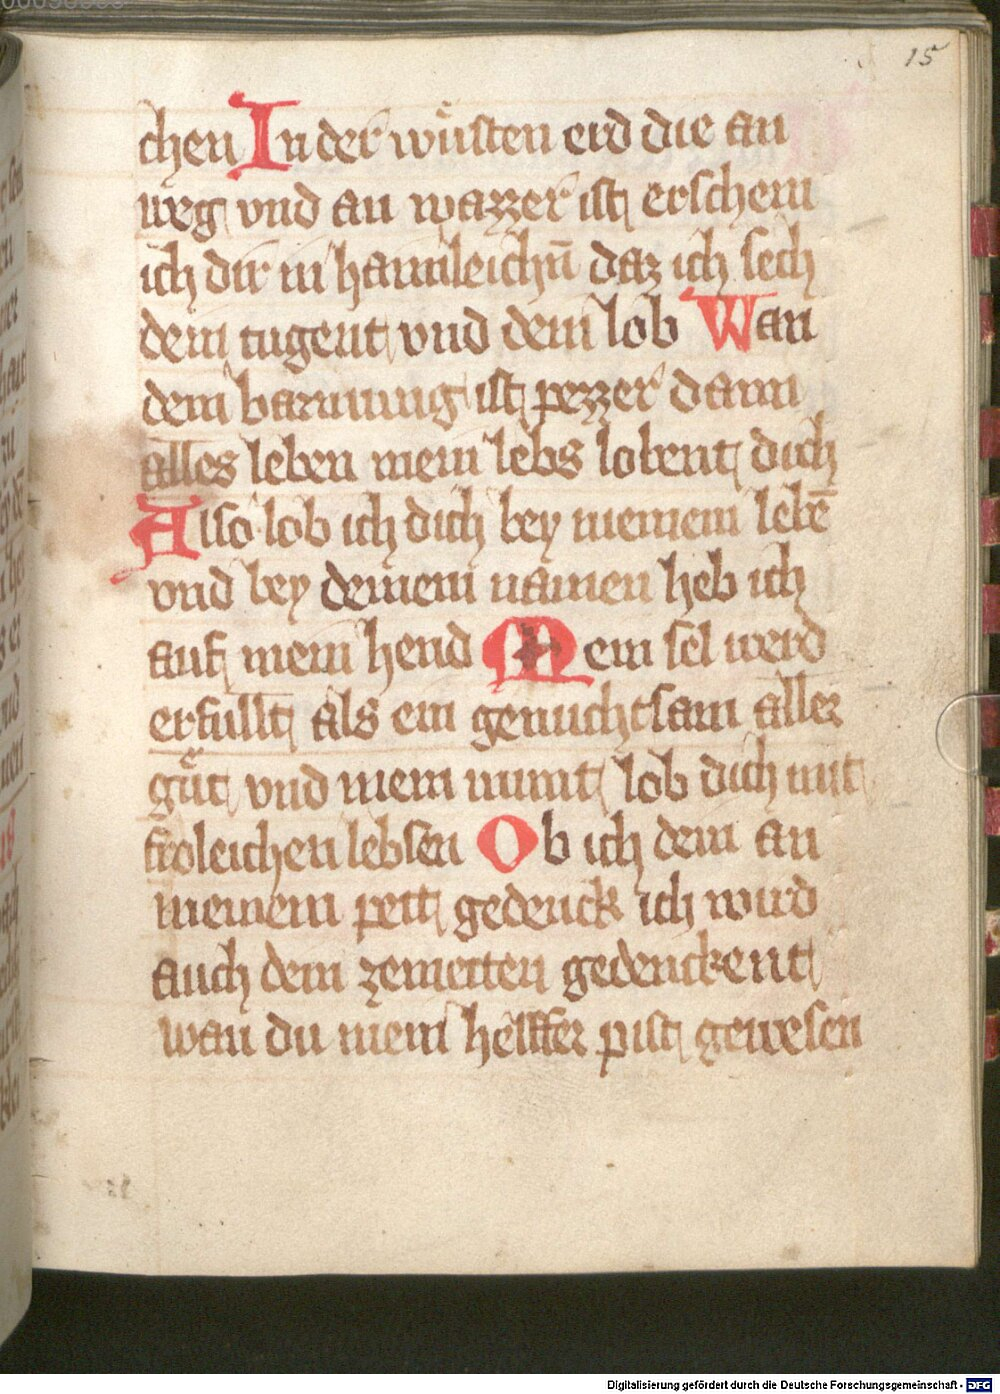 15
chen In der wůsten erd die an
weg vnd an wazzer ist erschein
ich dir in haimleichn̄ daz ich sech
dein tugent vnd dein lob Wan
dein barmung ist pezzer dann
alles leben mein lebs lobent dich
Also lob ich dich bey meinem lebē
vnd bey deinem namen heb ich
auf mein hend Mein sel werd
erfullt als ein genuchtsam aller
gůt vnd mein munt lob dich mit
froleichen lebsen Ob ich dein an
meinem pett gedenck ich wird
auch dein zemetten gedenckent
wan du mein helffer pist gewesen
Digitalisierung gefördert durch die Deutsche Forschungsgemeinschaft - DFG